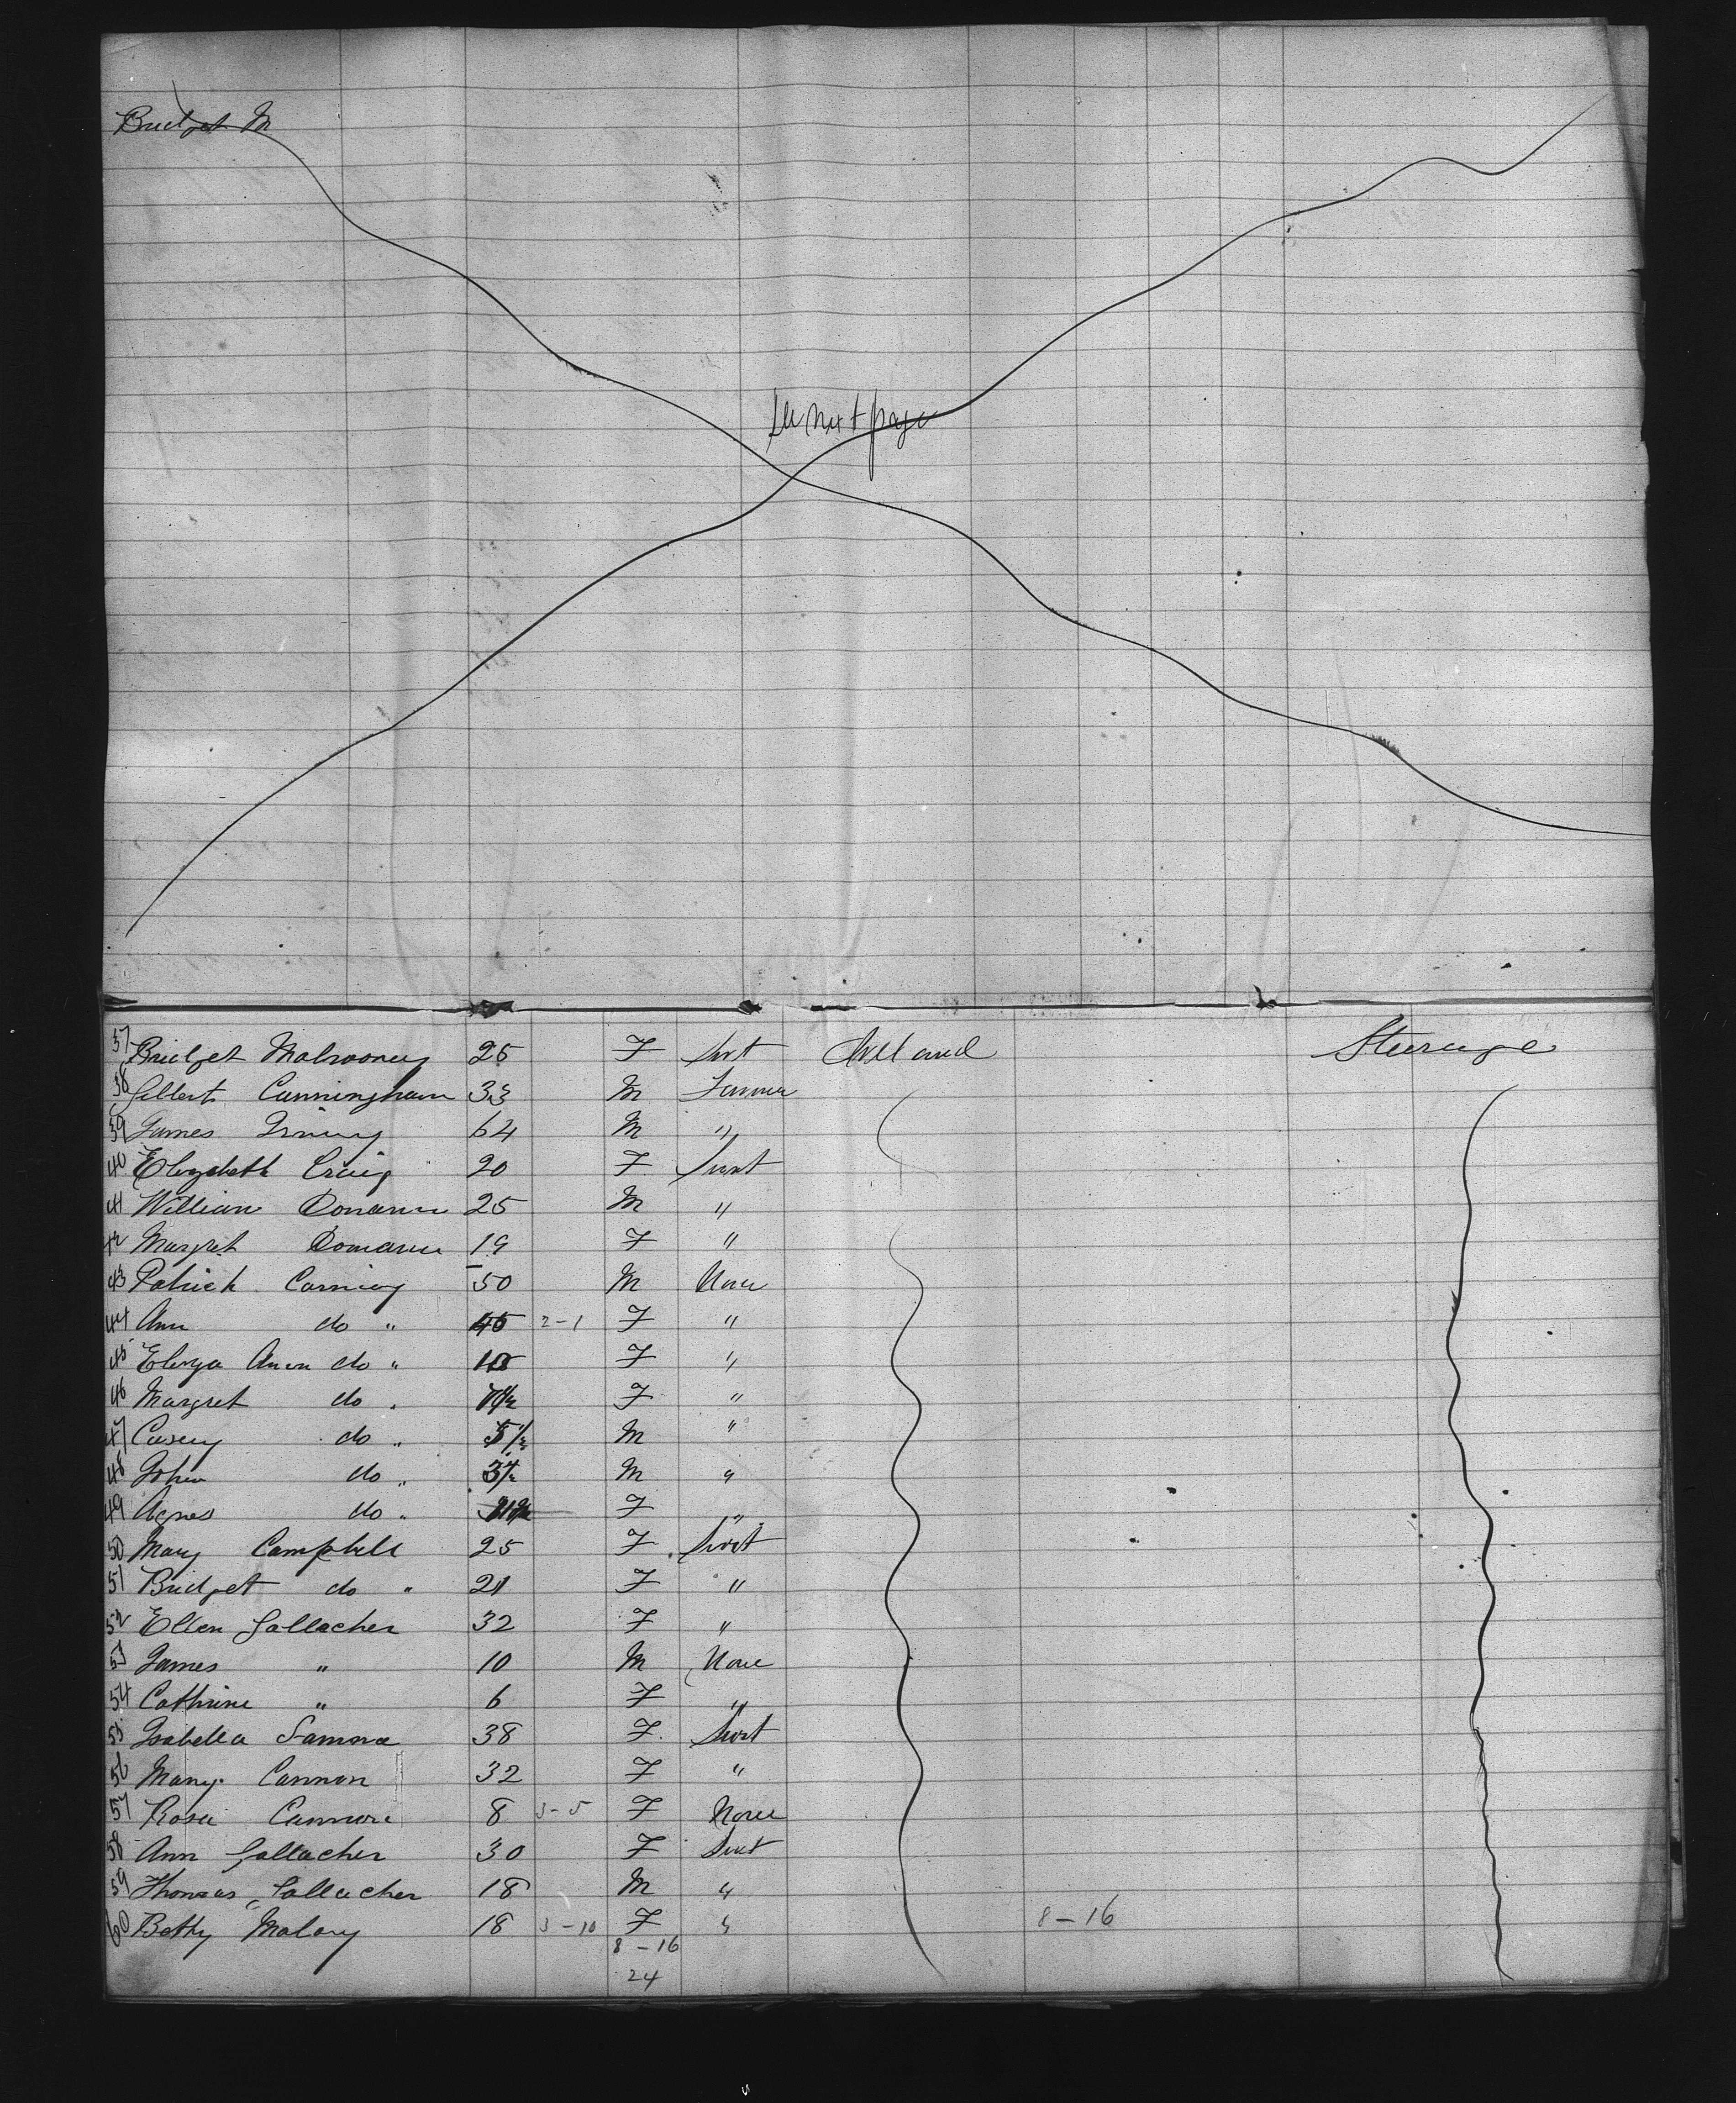 Bridget M
See next page
37 Bridget Malrooney 25 F Svt Ireland Steerage
38 Gilbert Cunningham 33 M Farmer
39 James Irving 64 M "
40 Elizabeth Craig 20 F Servt
41 William 25 M "
42 Margret 19 F "
43 Patrick 50 M None
44 Ann do " 2-1 F "
45 Eliza Ann do " F "
46 Margret do " F "
47 Casey do " M "
48 John do " M "
49 Agnes do " F "
50 Mary Campbell 25 F Servt
51 Bridget do " 21 F "
52 Ellen Gallacher 32 F "
53 James " 10 M None
54 Cathrine " 6 F "
55 Isabella 38 F Servt
56 Mary Cannon 32 F "
57 Rosa 8 3-5 F None
58 Ann Gallacher 30 F Servt
59 Thomas Gallacher 18 M "
60 Bethy Malony 18 3-10 F " 8-16
8-16
24